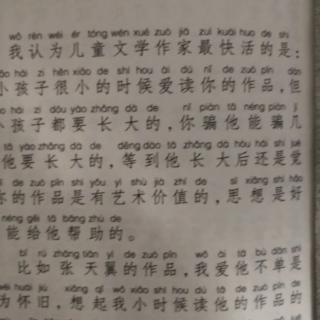 wǒ rèn wéi ér tóng wén xué zuò jiā zuì kuài huo de shì
我认为儿童文学作家最快活的是：
hái zi hěn xiǎo de shí hou ài dú nǐ de zuò pǐn dàn
小孩子很小的时候爱读你的作品，但
hái zi dōu yào zhǎng dà de nǐ piàn tā néng piàn jǐ
小孩子都要长大的，你骗他能骗几
tā yào zhǎng dà de děng dào tā zhǎng dà hòu hái shì jué
他要长大的，等到他长大后还是觉
de zuò pǐn shì yǒu yì shù jià zhí de sī xiǎng shì hǎo
你的作品是有艺术价值的，思想是好
néng gěi tā bāng zhù de
能给他帮助的。
bǐ rú zhāng tiān yì de zuò pǐn wǒ ài tā bù dān shì
比如张天翼的作品，我爱他不单是
wèi huái jiù xiǎng qǐ wǒ xiǎo shí hou dú tā de zuò pǐn de
为怀旧，想起我小时候读他的作品的